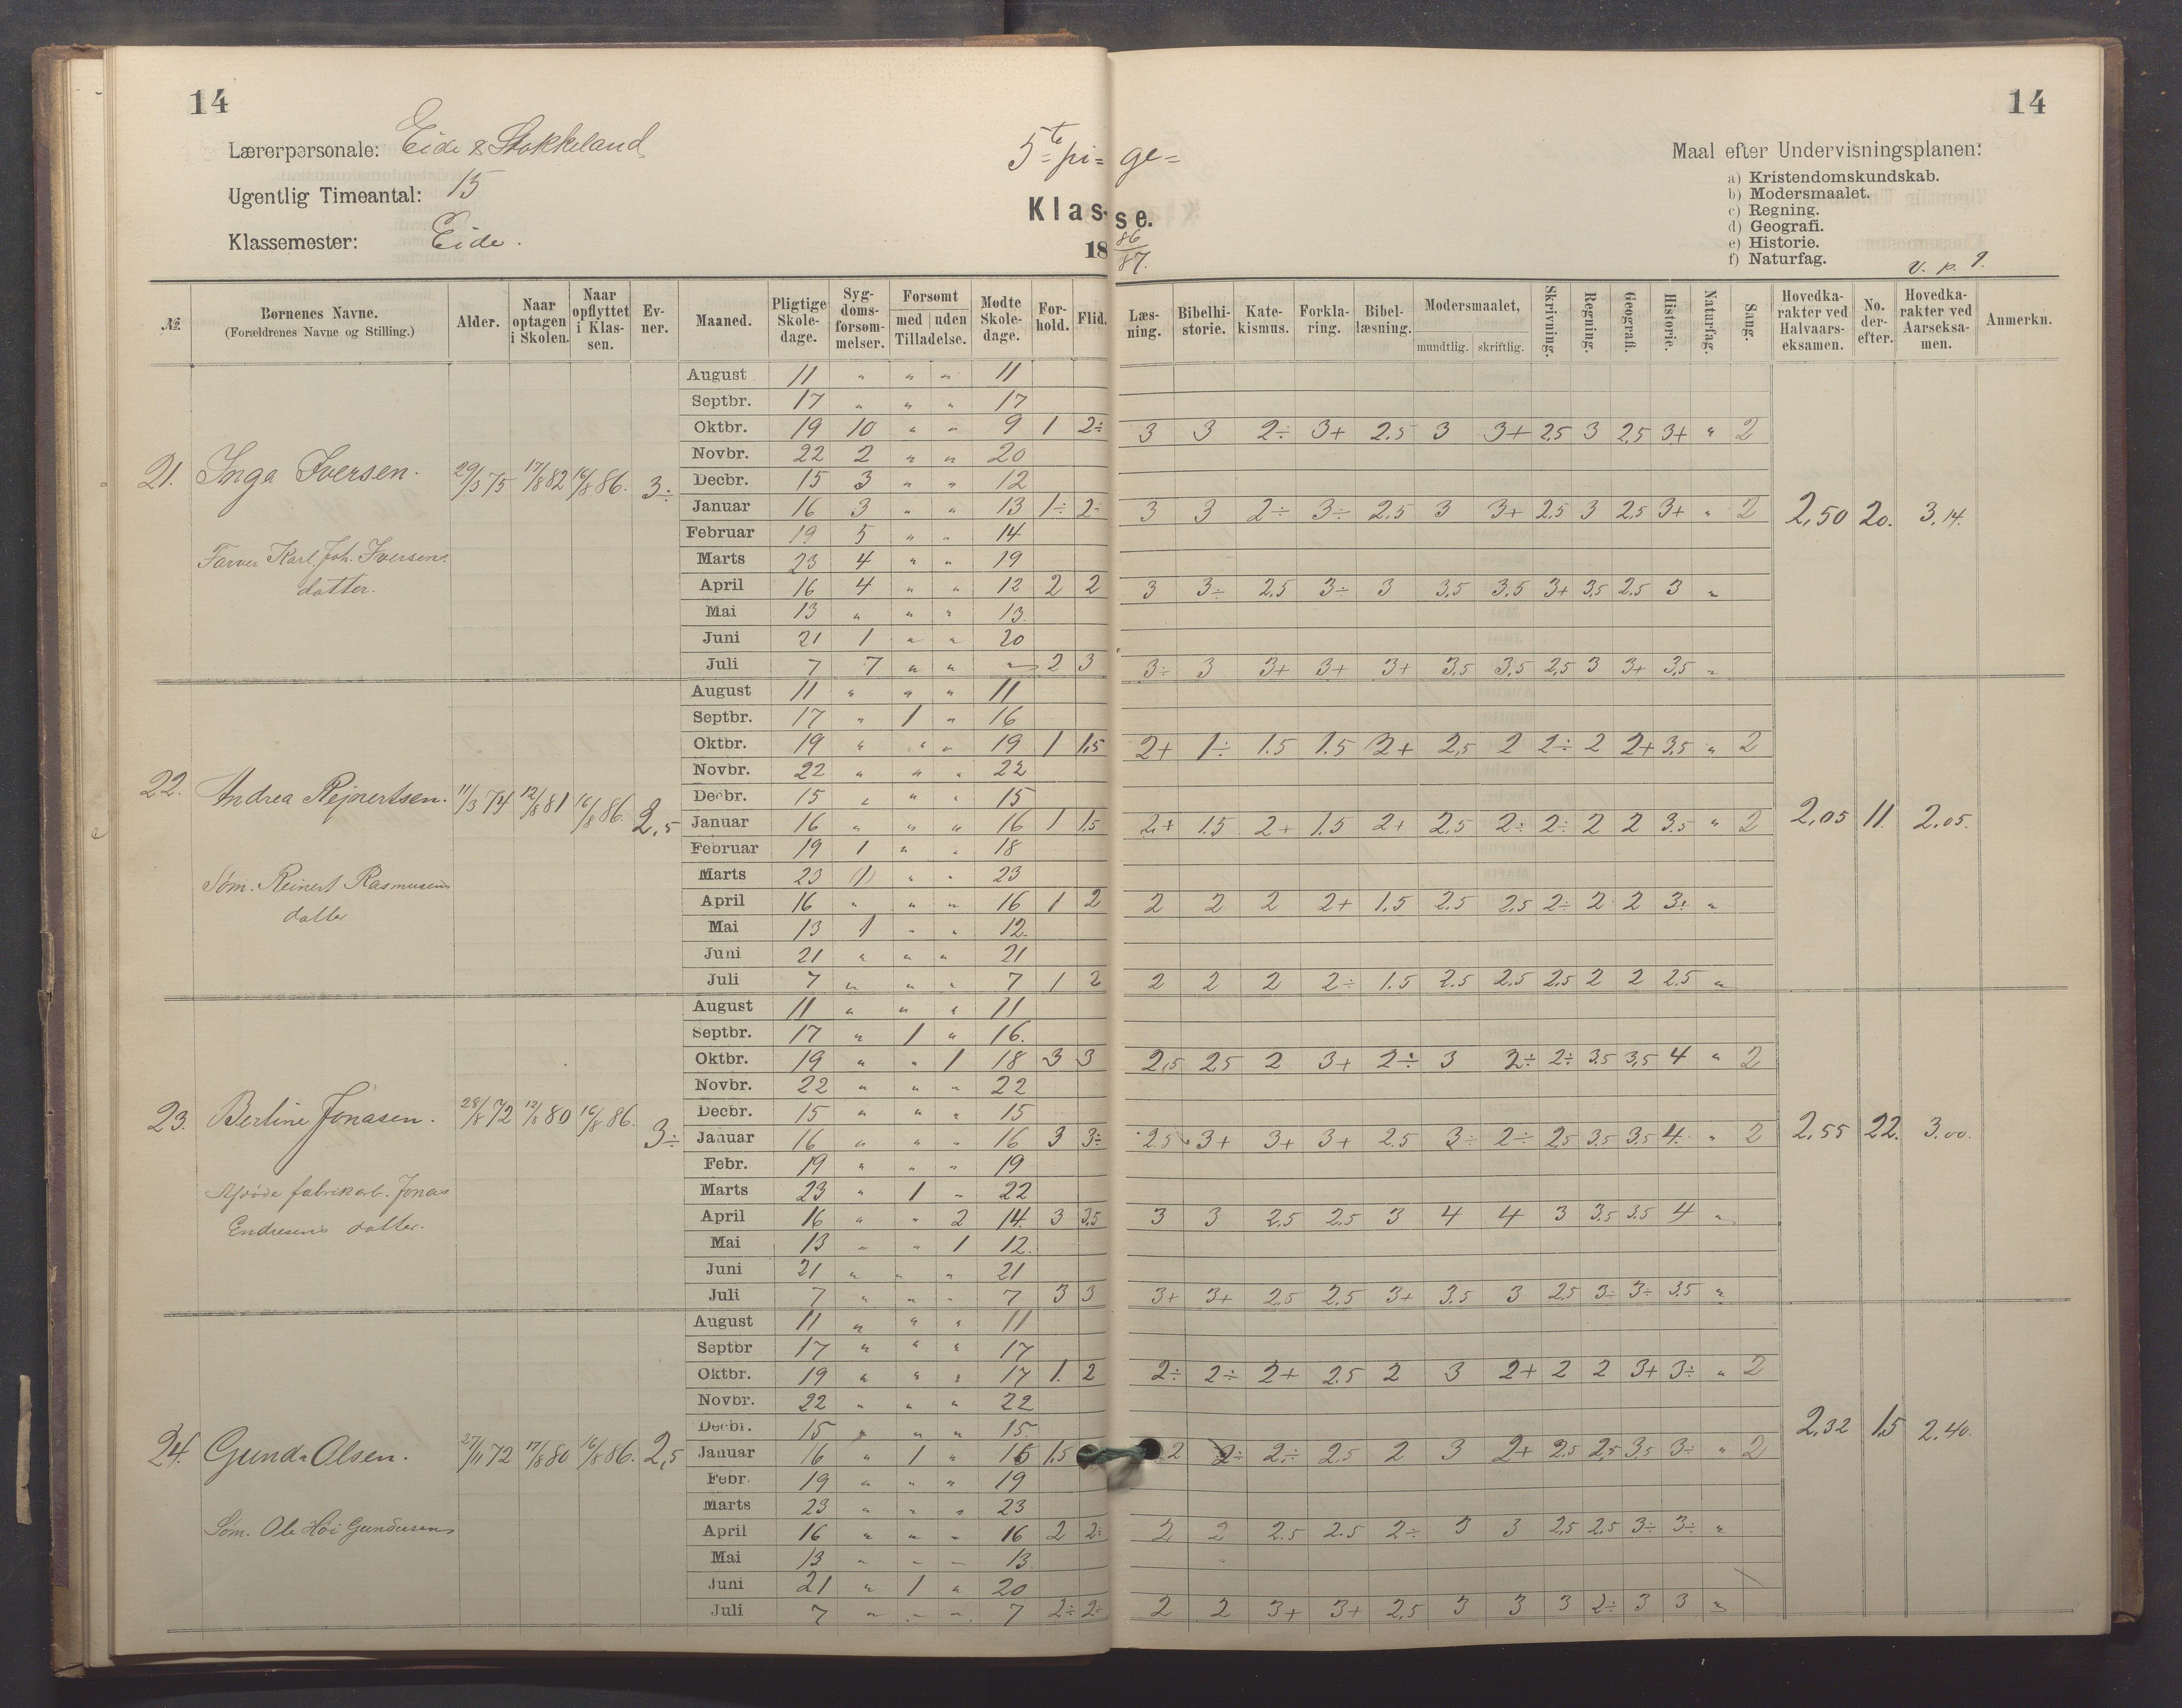 14
14
Lærerpersonale: Eide & Stokkeland
Ugentlig Timeantal: 15
Klassemester: Eide.
5te pige=
Klasse.
1886/87.
Maal efter Undervisningsplanen:
a) Kristendomskundskab.
b) Modersmaalet.
c) Regning.
d) Geografi.
e) Historie.
f) Naturfag.
v. p. 9.
No. Børnenes Navne. (Forældrenes Navne og Stilling.) Alder. Naar optagen i Skolen. Naar opflyttet i Klassen. Evner. Maaned. Pligtige Skoledage. Sygdomsforsømmelser. Forsømt med uden Tilladelse. Mødte Skoledage. Forhold. Flid. Læsning. Bibelhistorie. Katekismus. Forklaring. Bibellæsning. Modersmaalet, mundtlig. skriftlig. Skrivning. Regning. Geografi. Historie. Naturfag. Sang. Hovedkarakter ved Halvaarseksamen. No. derefter. Hovedkarakter ved Aarseksamen. Anmerkn.
21. Inga Iversen. 29/5 75 17/8 82 16/8 86. 3÷
Farver Karl Joh. Iversens
datter.
2,50 20. 3,14.
August 11 " " " 11
Septbr. 17 " " " 17
Oktbr. 19 10 " " 9 1 2÷ 3 3 2÷ 3+ 2.5 3 3+ 2.5 3 2.5 3+ " 2
Novbr. 22 2 " " 20
Decbr. 15 3 " " 12
Januar 16 3 " " 13 1÷ 2÷ 3 3 2÷ 3÷ 2.5 3 3+ 2.5 3 2.5 3+ " 2
Februar 19 5 " " 14
Marts 23 4 " " 19
April 16 4 " " 12 2 2 3 3÷ 2.5 3÷ 3 3,5 3.5 3+ 3,5 2,5 3 "
Mai 13 " " " 13.
Juni 21 1 " " 20
Juli 7 7 " " " 2 3 3÷ 3 3+ 3+ 3+ 3,5 3,5 2,5 3 3+ 3,5 "
22. Andrea Rejnertsen. 11/3 74 12/8 81 16/8 86. 2,5
Søm. Reinert Rasmusens
datter
2,05 11. 2,05.
August 11 " " " 11
Septbr. 17 " 1 " 16
Oktbr. 19 " " " 19 1 1,5 2+ 1÷ 1.5 1.5 2+ 2,5 2 2÷ 2 2+ 3.5 " 2
Novbr. 22 " " " 22
Decbr. 15 " " " 15
Januar 16 " " " 16 1 1,5 2+ 1.5 2+ 1.5 2+ 2,5 2÷ 2÷ 2 2 3.5 " 2
Februar 19 1 " " 18
Marts 23 (1) " " 23
April 16 " " " 16 1 2 2 2 2 2+ 1.5 2.5 2,5 2÷ 2 2 3÷ "
Mai 13 1 " " 12.
Juni 21 " " " 21
Juli 7 " " " 7 1 2 2 2 2 2÷ 1.5 2.5 2.5 2,5 2 2 2.5 "
23. Bertine Jonasen. 28/8 72 12/8 80 16/8 86. 3÷
Afdøde fabrikarb. Jonas
Endresens datter.
2,55 22. 3.00.
August 11 " " " 11
Septbr. 17 " 1 " 16.
Oktbr. 19 " " 1 18 3 3 2,5 2,5 2 3+ 2÷ 3 2÷ 2÷ 3.5 3,5 4 " 2
Novbr. 22 " " " 22
Decbr. 15 " " " 15
Januar 16 " " " 16 3 3÷ 2.5 3+ 3+ 3+ 2.5 3÷ 2÷ 2,5 3.5 3,5 4. " 2
Febr. 19 " " " 19
Marts 23 " 1 " 22
April 16 " " 2 14. 3 3.5 3 3 2,5 2.5 3 4 4 3 3.5 3.5 4 "
Mai 13 " " 1 12.
Juni 21 " " " 21
Juli 7 " " " 7 3 3 3+ 3+ 2,5 2,5 3+ 3.5 3 2.5 3÷ 3÷ 3.5 "
24. Gunda Olsen. 27/11 72 17/8 80 16/8 86. 2,5
Søm. Ole Høi Gundersens
2,32 15 2,40.
August 11 " " " 11
Septbr 17 " " " 17
Oktbr. 19 " " " 17 1. 2 2÷ 2÷ 2+ 2.5 2 3 2+ 2 2 3+ 3÷ " 2
Novbr. 22 " " " 22
Decbr. 15 " " " 15.
Januar 16 " 1 " 15 1,5 2 2÷ 2÷ 2,5 2 3 2+ 2.5 2,5 3,5 3÷ " 2
Febr. 19 " " " 19
Marts 23 " " " 23
April 16 " " " 16 2 2÷ 2 2 2.5 2.5 2÷ 3 3 2,5 2,5 3÷ 3÷ "
Mai 13 " " " 13.
Juni 21 " 1 " 20
Juli 7 " " " 7 2÷ 2÷ 2 2 3+ 3+ 2,5 3 3 3 2÷ 3 3 "